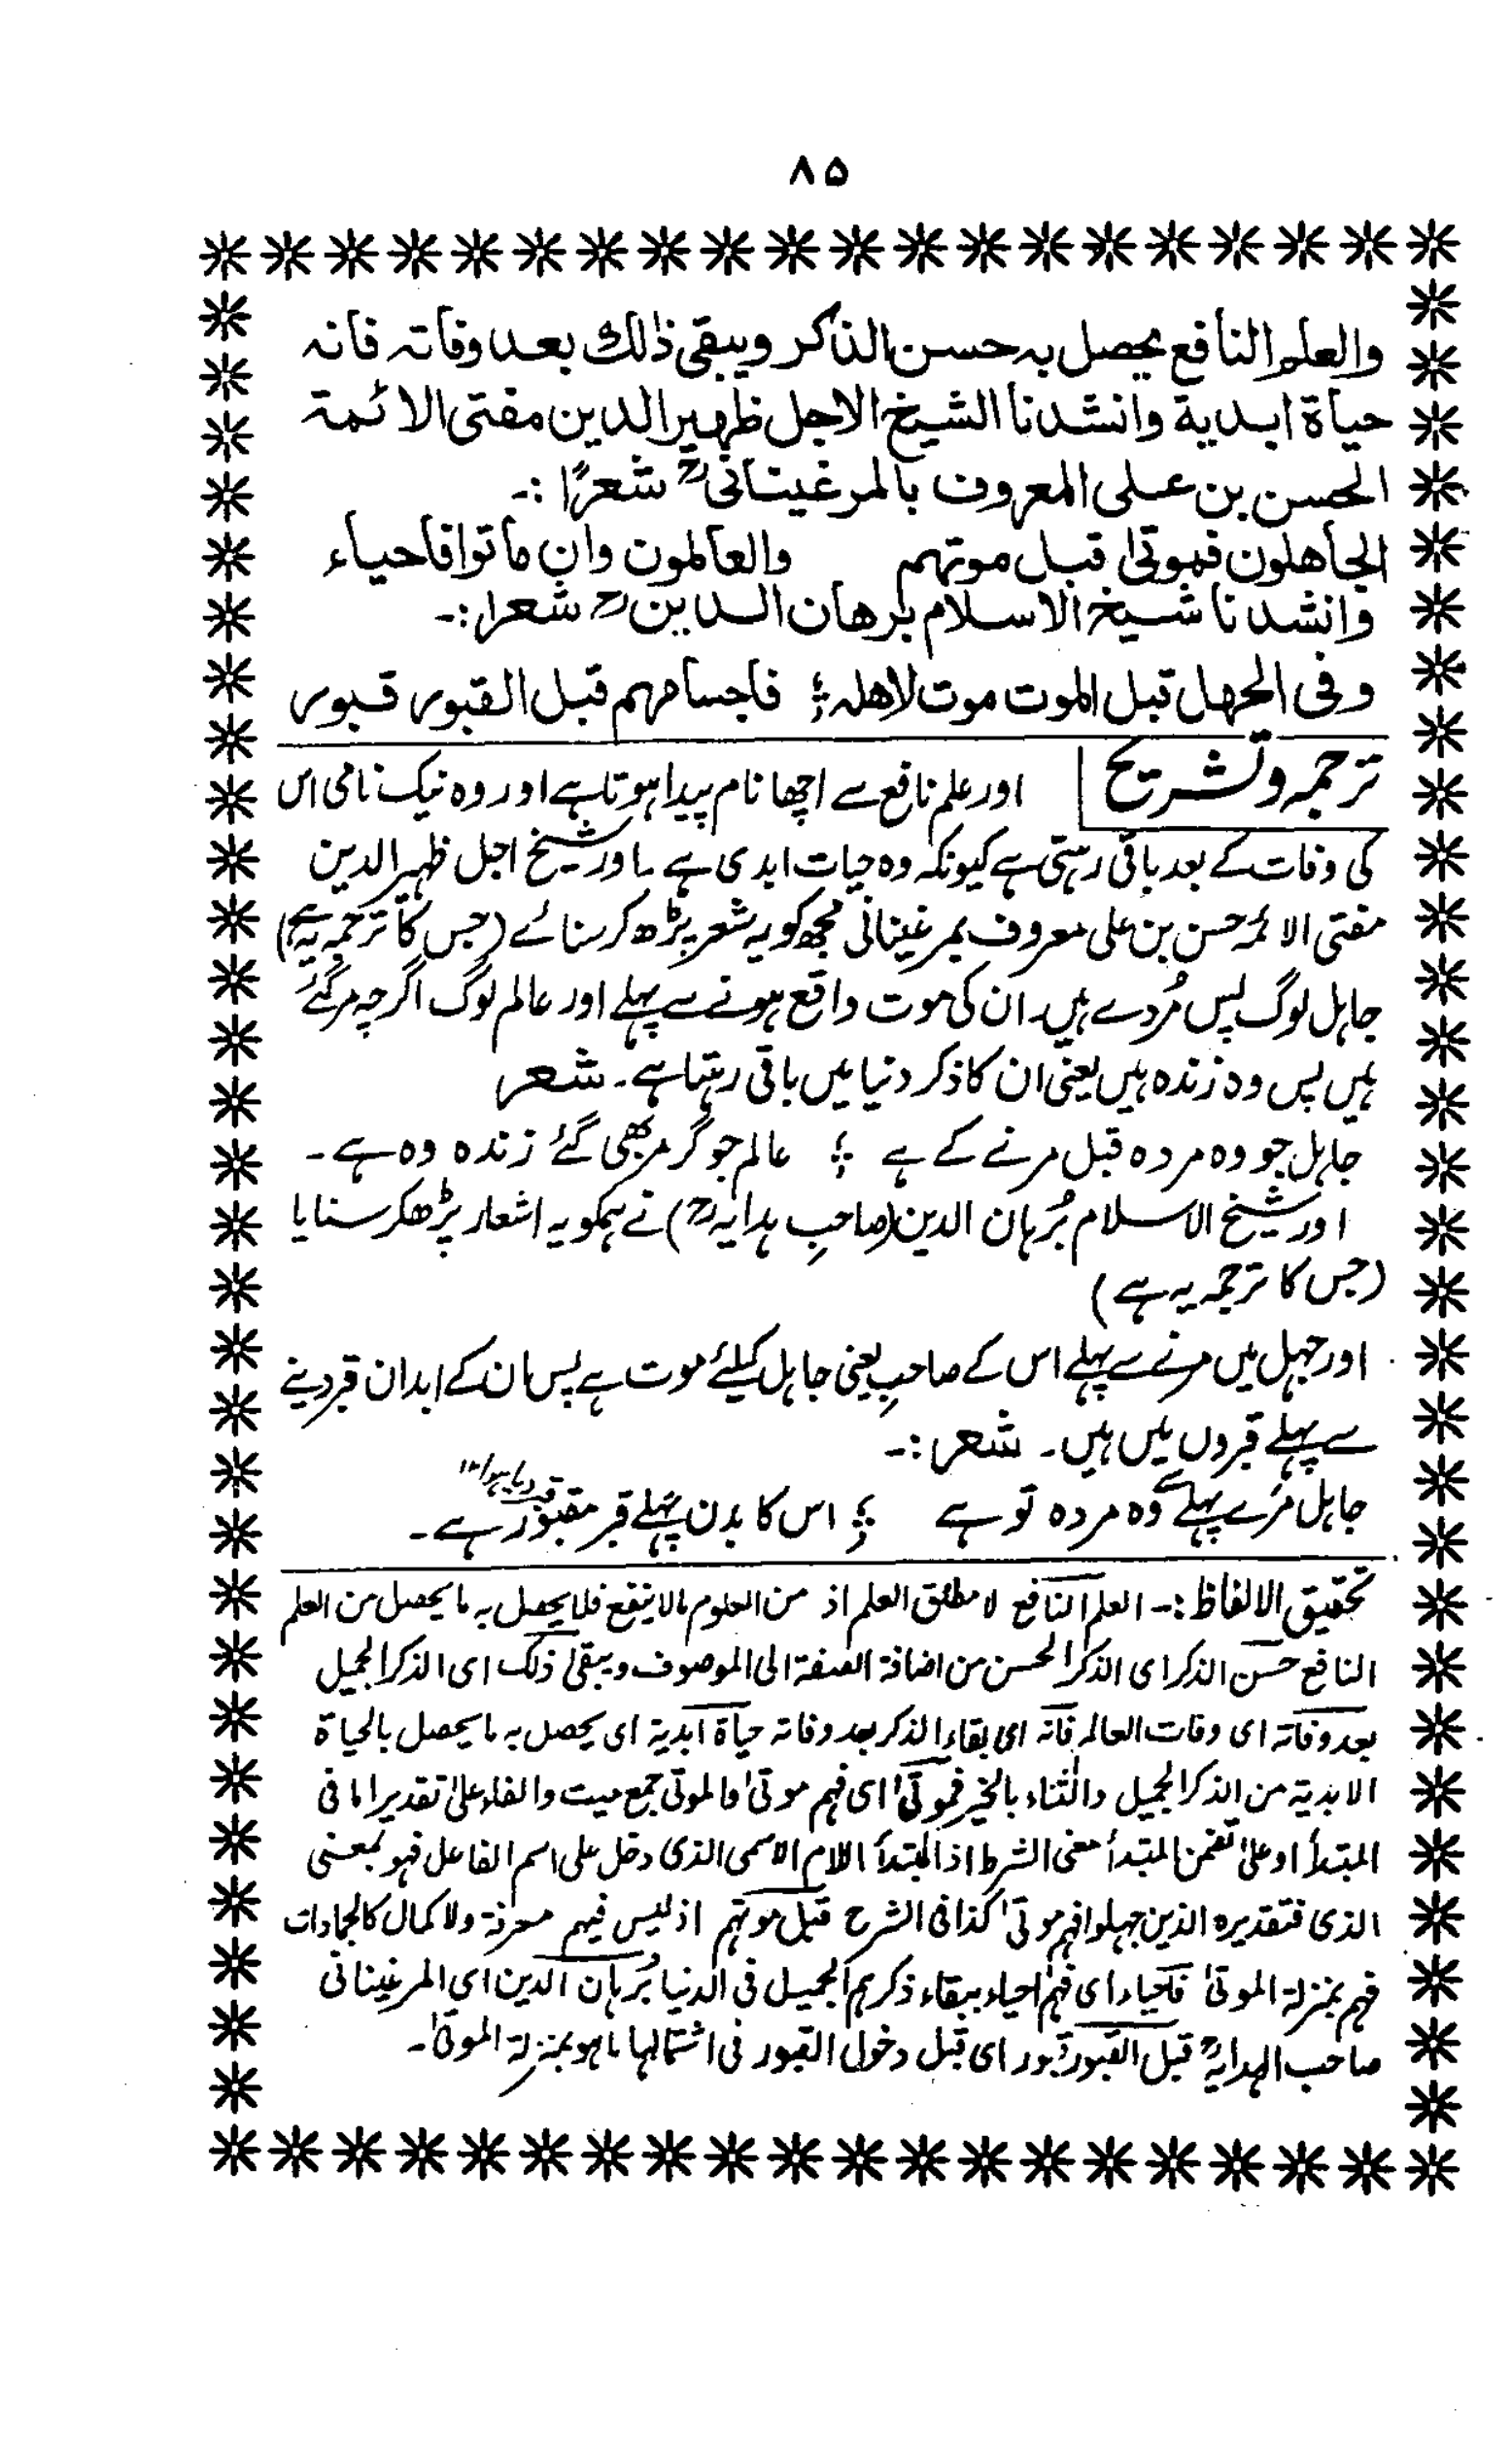 ۸۵
والعلم النافع يحصل به حسن الذكر ويبقى ذلك بعد وفاته فانه
حياة ابدية وانشدنا الشيخ الاجل ظهير الدين مفتى الائمة
الحسن بن على المعروف بالمرغينانىؒ شعرًا :-
الجاهلون فموتىٰ قبل موتهم والعالمون وان ماتوا فاحياء
وانشدنا شيخ الاسلام برهان الدينؒ شعرا :-
وفى الجهل قبل الموت موت لاهله ؛ فاجسامهم قبل القبور قبور
ترجمہ وتشریح اور علم نافع سے اچھا نام پیدا ہوتا ہے اور وہ نیک نامی اس
کی وفات کے بعد باقی رہتی ہے کیونکہ وہ حیات ابدی ہے ۔ اور شیخ اجل ظہیر الدین
مفتی الائمہ حسن بن علی معروف بمرغینانی مجھ کو یہ شعر پڑھ کر سنائے (جس کا ترجمہ یہ ہے)
جاہل لوگ پس مُردے ہیں۔ ان کی موت واقع ہونے سے پہلے اور عالم لوگ اگرچہ مرگئے
ہیں پس وہ زندہ ہیں یعنی ان کا ذکر دنیا میں باقی رہتا ہے ۔ شعر
جاہل جو وہ مردہ قبل مرنے کے ہے ؛ عالم جو گر مر بھی گئے زندہ وہ ہے ۔
اور شیخ الاسلام بُرہان الدین (صاحبِ ہدایہؒ) نے ہمکو یہ اشعار پڑھکر سنایا
(جس کا ترجمہ یہ ہے)
اور جہل میں مرنے سے پہلے اس کے صاحبِ یعنی جاہل کیلئے موت ہے پس ان کے ابدان قبر دینے
سے پہلے قبروں میں ہیں۔ شعر :-
جاہل مرَے پہلے وہ مردہ تو ہے ؛ اس کا بدن پہلے قبر مقبور ہے ۔
تحقیق الالفاظ :- العلم النافع لا مطلق العلم اذ من العلوم مالا ینفع فلا یحصل بہ ما یحصل من العلم
النافع حسن الذکر ای الذکر الحسن من اضافۃ الصفۃ الی الموصوف ویبقیٰ ذلک ای الذکر الجمیل
بعد وفاتہ ای وفات العالم فانہ ای بقاء الذکر بعد وفاتہ حیاۃ ابدیۃ ای یحصل بہ ما یحصل بالحیاۃ
الابدیۃ من الذکر الجمیل والثناء بالخیر فموتیٰ ای فہم موتیٰ والموتیٰ جمع میت والفاء علیٰ تقدیر اما فی
المبتدأ او علیٰ تضمن المبتدأ معنی الشرط اذ المبتدأ اللام الاسمی الذی دخل علی اسم الفاعل فہو بمعنی
الذی فتقدیرہ الذین جہلوا فہم موتیٰ کذا فی الشرح قبل موتہم اذ لیس فیہم معرفۃ ولا کمال کالجمادات
فہم بمنزلۃ الموتیٰ فاحیاء ای فہم احیاء ببقاء ذکرہم الجمیل فی الدنیا بُرہان الدین ای المرغینانی
صاحب الہدایۃؒ قبل القبور قبور ای قبل دخول القبور فی اشتمالہا ما ہو بمنزلۃ الموتیٰ ۔